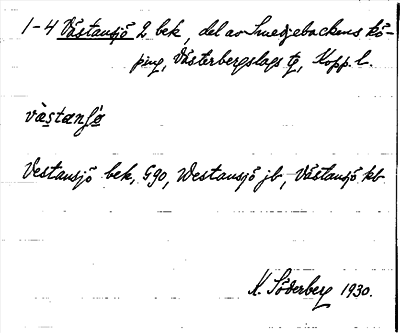 1-4 Västansjö 2 bek, del av Smedjebackens kö-
ping, Västerbergslags tg, Kopp. l.
västansjö
Vestansjö bek, G90, Westansjö jb, Västansjö kb
K. Söderberg 1930.